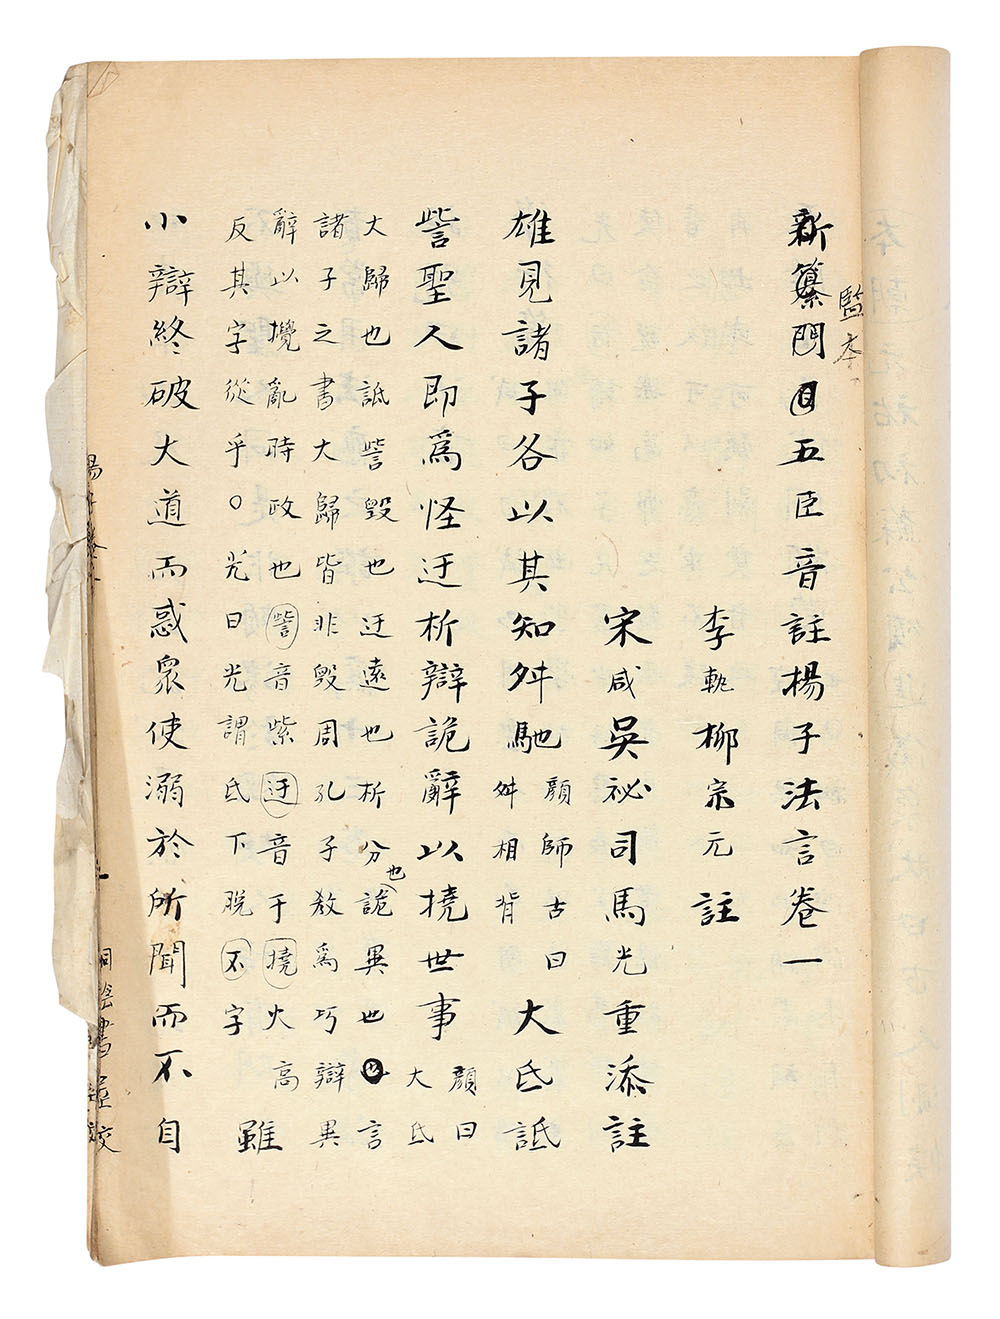 新纂門目五臣音註楊子法言卷一
監本
李軌柳宗元註
宋咸吳祕司馬光重添註
雄見諸子各以其知舛馳顏師古曰舛相背大氐詆
訾聖人即爲怪迂析辯詭辭以撓世事顏曰大氐
大歸也詆訾毀也迂遠也析分也詭異也言
諸子之書大歸皆非毀周孔子教爲巧辯異
辭以攪亂時政也訾音紫迂音于撓火高
反其字從乎○光曰光謂氐下脫不字雖
小辯終破大道而惑眾使溺於所聞而不自